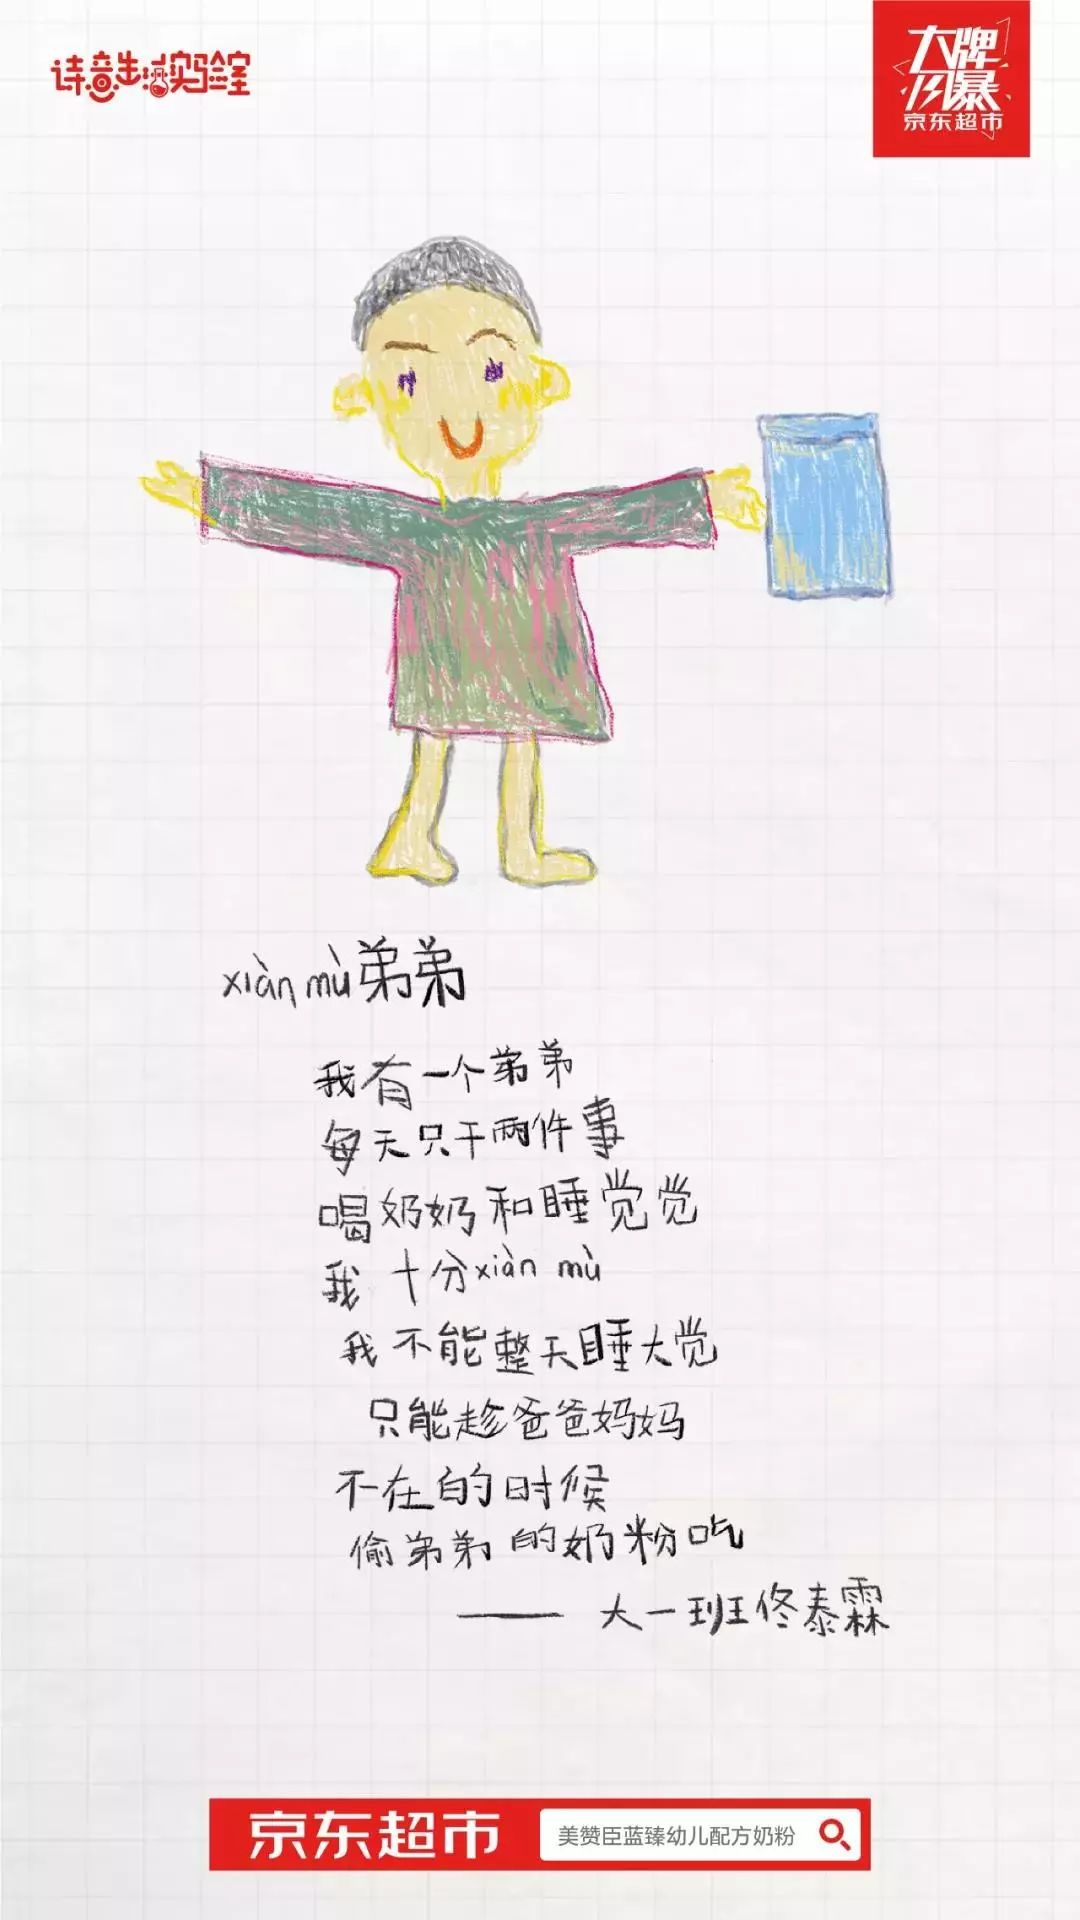 诗意生活实验室
大牌
风暴
京东超市
xiàn mù弟弟
我有一个弟弟
每天只干两件事
喝奶奶和睡觉觉
我十分xiàn mù
我不能整天睡大觉
只能趁爸爸妈妈
不在的时候
偷弟弟的奶粉吃
—— 大一班佟泰霖
京东超市
美赞臣蓝臻幼儿配方奶粉